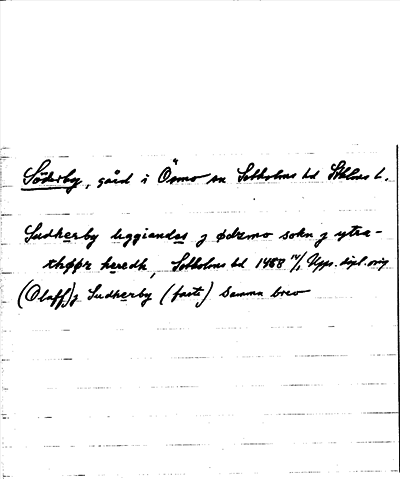 Söderby, gård i Ösmo sn Sotholms hd Sthlms l.
Sudherby liggiandes j ødzmo sokn j ytra-
thøør heredh, Sotholms hd 1488 Upps. dipl. orig
(Olaff) j Sudherby (faste) samma brev